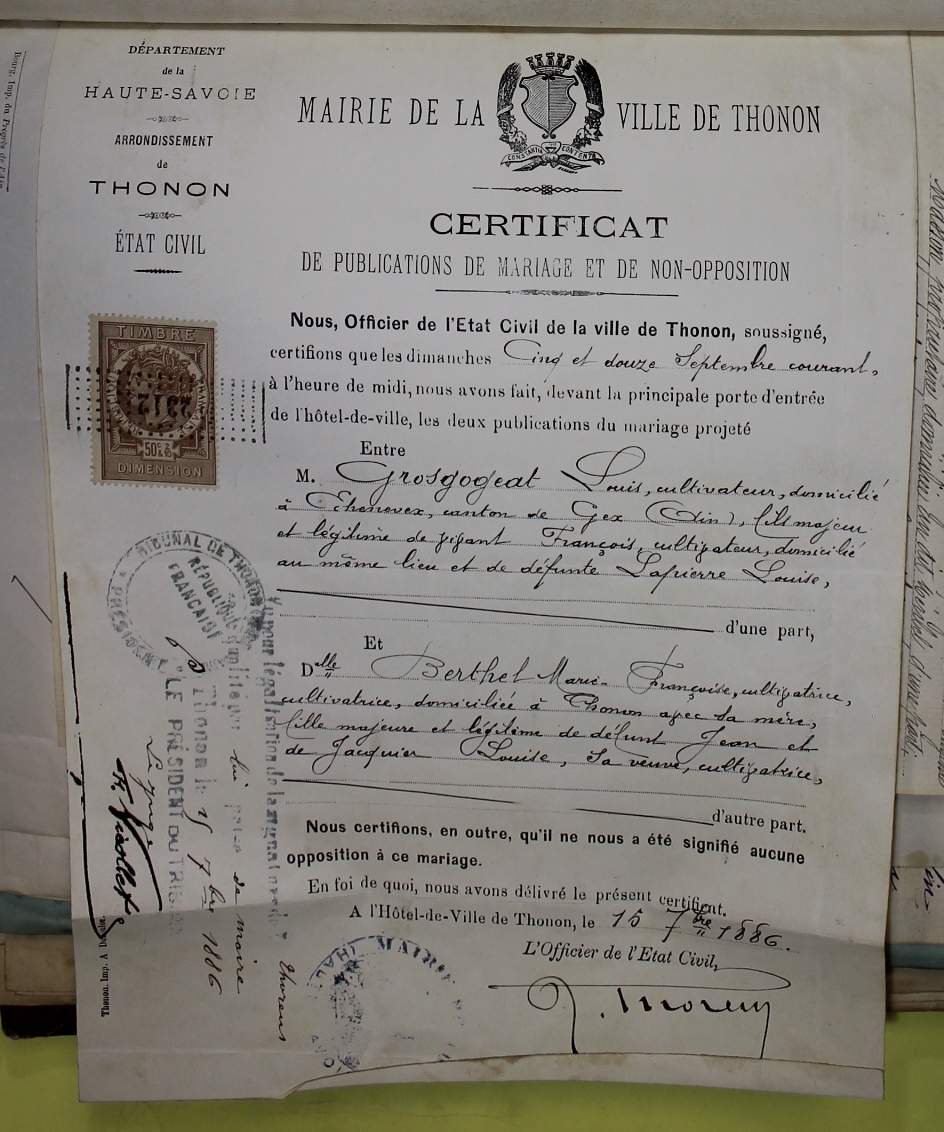 DÉPARTEMENT
de la
HAUTE-SAVOIE
ARRONDISSEMENT
de
THONON
ÉTAT CIVIL
MAIRIE DE LA VILLE DE THONON
CERTIFICAT
DE PUBLICATIONS DE MARIAGE ET DE NON-OPPOSITION
TIMBRE
2912
50c
DIMENSION
Nous, Officier de l'Etat Civil de la ville de Thonon, soussigné,
certifions que les dimanches Cinq et douze Septembre courant,
à l'heure de midi, nous avons fait, devant la principale porte d'entrée
de l'hôtel-de-ville, les deux publications du mariage projeté
Entre
M. Grosgogeat Louis, cultivateur, domicilié
à Echenevex, canton de Gex (Ain), fils majeur
et légitime de vivant François, cultivateur, domicilié
au même lieu et de défunte Lapierre Louise,
d'une part,
Et
Delle Berthet Marie-Françoise, cultivatrice,
cultivatrice, domiciliée à Thonon avec sa mère,
fille majeure et légitime de défunt Jean et
de Jacquier Louise, sa veuve, cultivatrice,
d'autre part.
Nous certifions, en outre, qu'il ne nous a été signifié aucune
opposition à ce mariage.
En foi de quoi, nous avons délivré le présent certificat.
A l'Hôtel-de-Ville de Thonon, le 15 7bre 1886.
L'Officier de l'Etat Civil,
TRIBUNAL DE THONON
PRÉSIDENT
RÉPUBLIQUE
FRANÇAISE
Vu pour légalisation de la signature de
de maire
Thonon le 15 7bre 1886
LE PRÉSIDENT DU TRIB
Le juge
MAIRIE
Thonon. Imp. A
Bourg, Imp. du Progrès de l'Ain